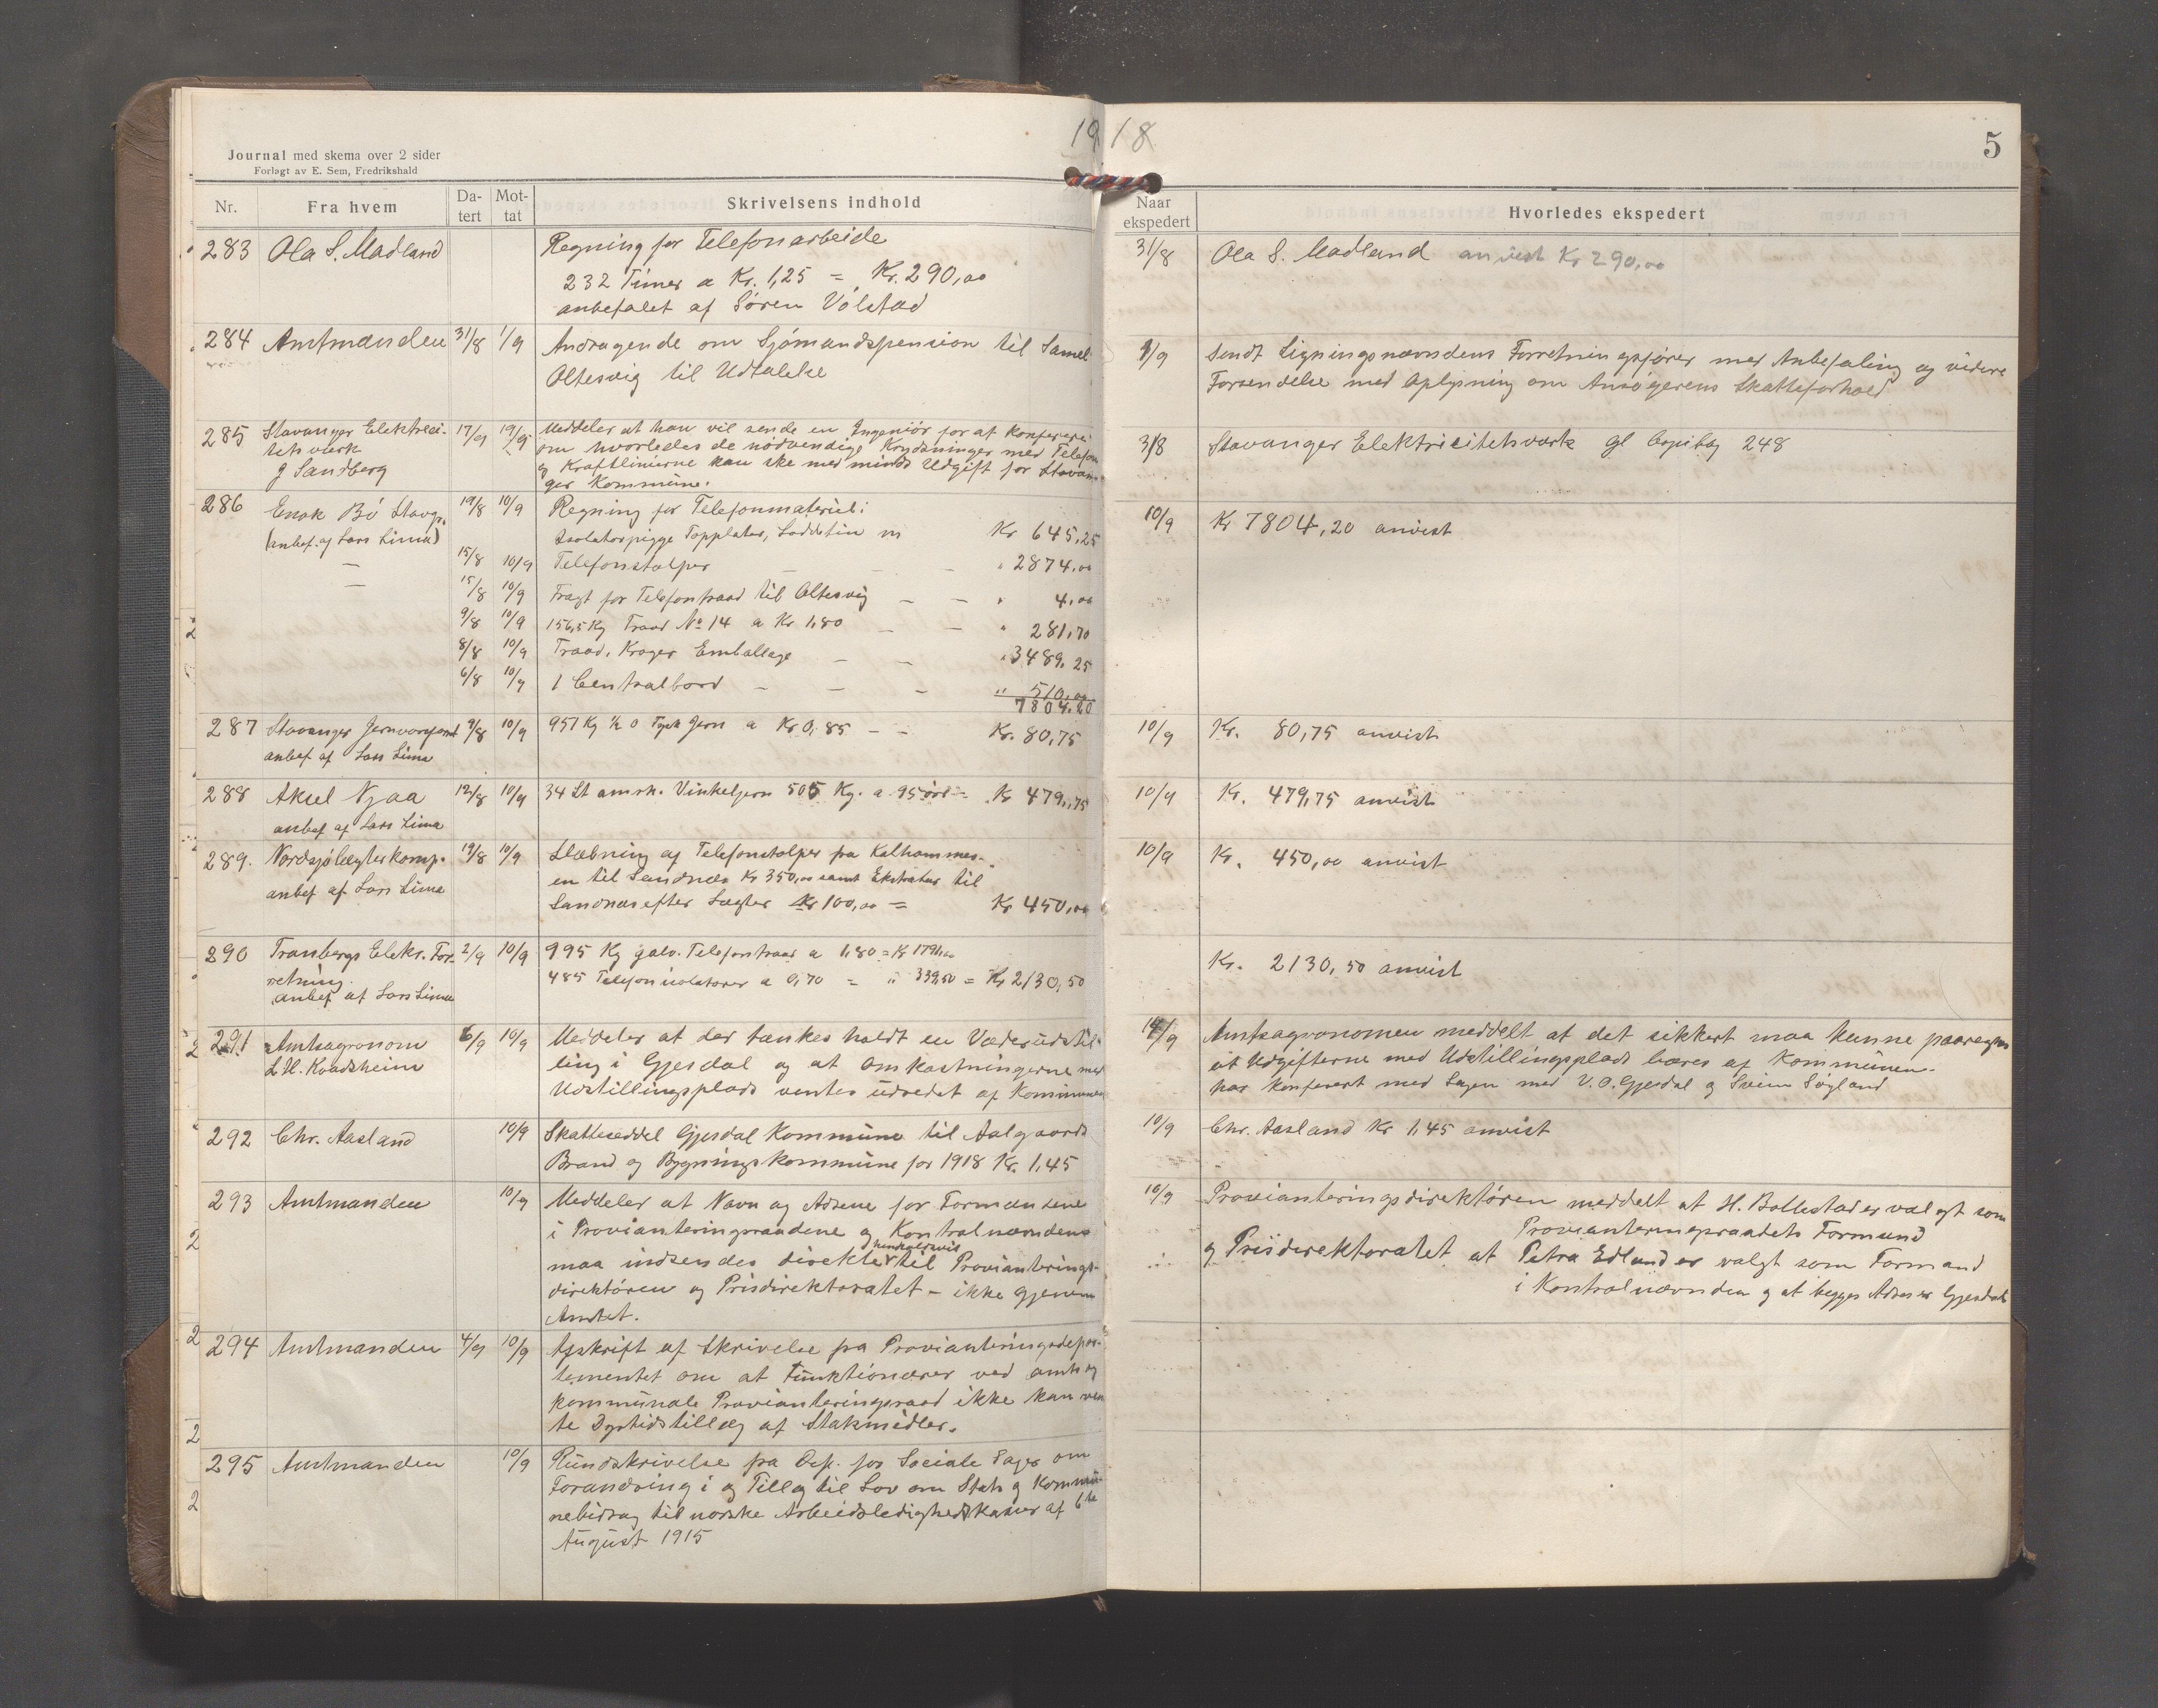 1918
Journal med skema over 2 sider
Forlagt av E. Sem, Fredrikshald
5
Nr.
Fra hvem
Da-
tert
Mot-
tat
Skrivelsens indhold
Naar
ekspedert
Hvorledes ekspedert
283 Ola S. Madland Regning for Telefonarbeide
232 Timer a Kr. 1,25 = Kr. 290,00
anbefalet af Søren Vølstad
31/8 Ola S. Madland anvist Kr 290,00
284 Amtmanden 31/8 1/9 Andragende om Sjømandspension til Samel
Oltesvig til Udtalelse
9/9 Sendt Ligningsnævndens Forretningsfører med Anbefaling og videre
Forsendelse med Oplysning om Ansøgerens Skatteforhold
285 Stavanger Elektreci-
tetsværk
g Sandberg
17/9 19/9 Meddeler at han vil sende en Ingeniör for at Konferere
om hvorledes de nödvendige Krydsninger med Telefon
og Kraftlinierne kan ske med mindst Udgift for Stavan-
ger Kommune.
31/8 Stavanger Elektricitetsværk gl Copibog 248
286 Enok Bö Stavgr.
(anbef. af Lars Lima)
19/8 10/9 Regning for Telefonmateriel:
Isolatorpigge Topplater, Loddetin m Kr 645,25
— 15/8 10/9 Telefonstolper — — — " 2874,00
— 15/8 10/9 Fragt for Telefontraad til Oltesvig — — " 4,00
9/8 10/9 156,5 Kg Traad No 14 a Kr 1,80 — — " 281,70
8/8 10/9 Traad, Kroger Emballage — — " 3489,25
6/8 10/9 1 Centralbord — — — " 510,00
7804,20
10/9 Kr 7804,20 anvist
287 Stavanger Jernvareforret
anbef af Lars Lima
9/8 10/9 951 Kg a Kr 0,85 — — Kr. 80,75
10/9 Kr. 80,75 anvist
288 Aksel Njaa
anbef af Lars Lima
12/8 10/9 34 St amrk. Vinkeljern 505 Kg. a 95 öre = Kr 479,75
10/9 Kr. 479,75 anvist
289. Nordsjölægterkomp.
anbef af Lars Lima
19/8 10/9 Slæbning af Telefonstolper fra Kalhammer-
en til Sandnæs Kr 350,00 samt Ekstratur til
Sandnæs efter Lægter Kr 100,00 = Kr 450,00
10/9 Kr. 450,00 anvist
290 Tranbergs Elektr. For-
retning
anbef af Lars Lima
2/9 10/9 995 Kg galv. Telefontraad a 1,80 = Kr 1791,00
485 Telefonisolatorer a 0,70 = " 339,50 = Kr 2130,50
Kr. 2130,50 anvist
291 Amtsagronom
L H. Kvadsheim
6/9 10/9 Meddeler at der tænkes holdt en Vædderudstil-
ling i Gjesdal og at Omkostningerne med
Udstillingsplads ventes udredet af Kommunen
14/9 Amtsagronomen meddelt at det sikkert maa kunne paaregnes
at Udgifterne med Udstillingsplads bæres af Kommunen.
har konferert med Sagen med V. O. Gjesdal g Svein Søyland
292 Chr. Aasland 10/9 Skatteseddel Gjesdal Kommune til Aalgaards
Brand og Bygningskommune for 1918 Kr. 1,45
10/9 Chr. Aasland Kr 1,45 anvist
293 Amtmanden 10/9 Meddeler at Navn og Adresse for Formændene
i Provianteringsraadene og Kontrolnævndens
maa indsendes direkte henholdsvis til Provianterings-
direktören og Prisdirektoratet — ikke gjennem
Amtet.
10/9 Provianteringsdirektören meddelt at H. Bollestad er valgt som
Provianteringsraadets Formand
g Prisdirektoratet at Petra Edland er valgt som Formand
i Kontrolnævnden g at begges Adresse er Gjesdal
294 Amtmanden 4/9 10/9 Afskrift af Skrivelse fra Provianteringsdepar-
tementet om at Funktionærer ved amts og
kommunale Provianteringsraad ikke kan ven
te Dyrtidstillæg af Statsmidler.
295 Amtmanden 10/9 Rundskrivelse fra Dep. for Sociale Sager om
Forandring i og Tillæg til Lov om Stats g Kommu-
nebidrag til norske Arbeidsledighedskasser af 6te
August 1915